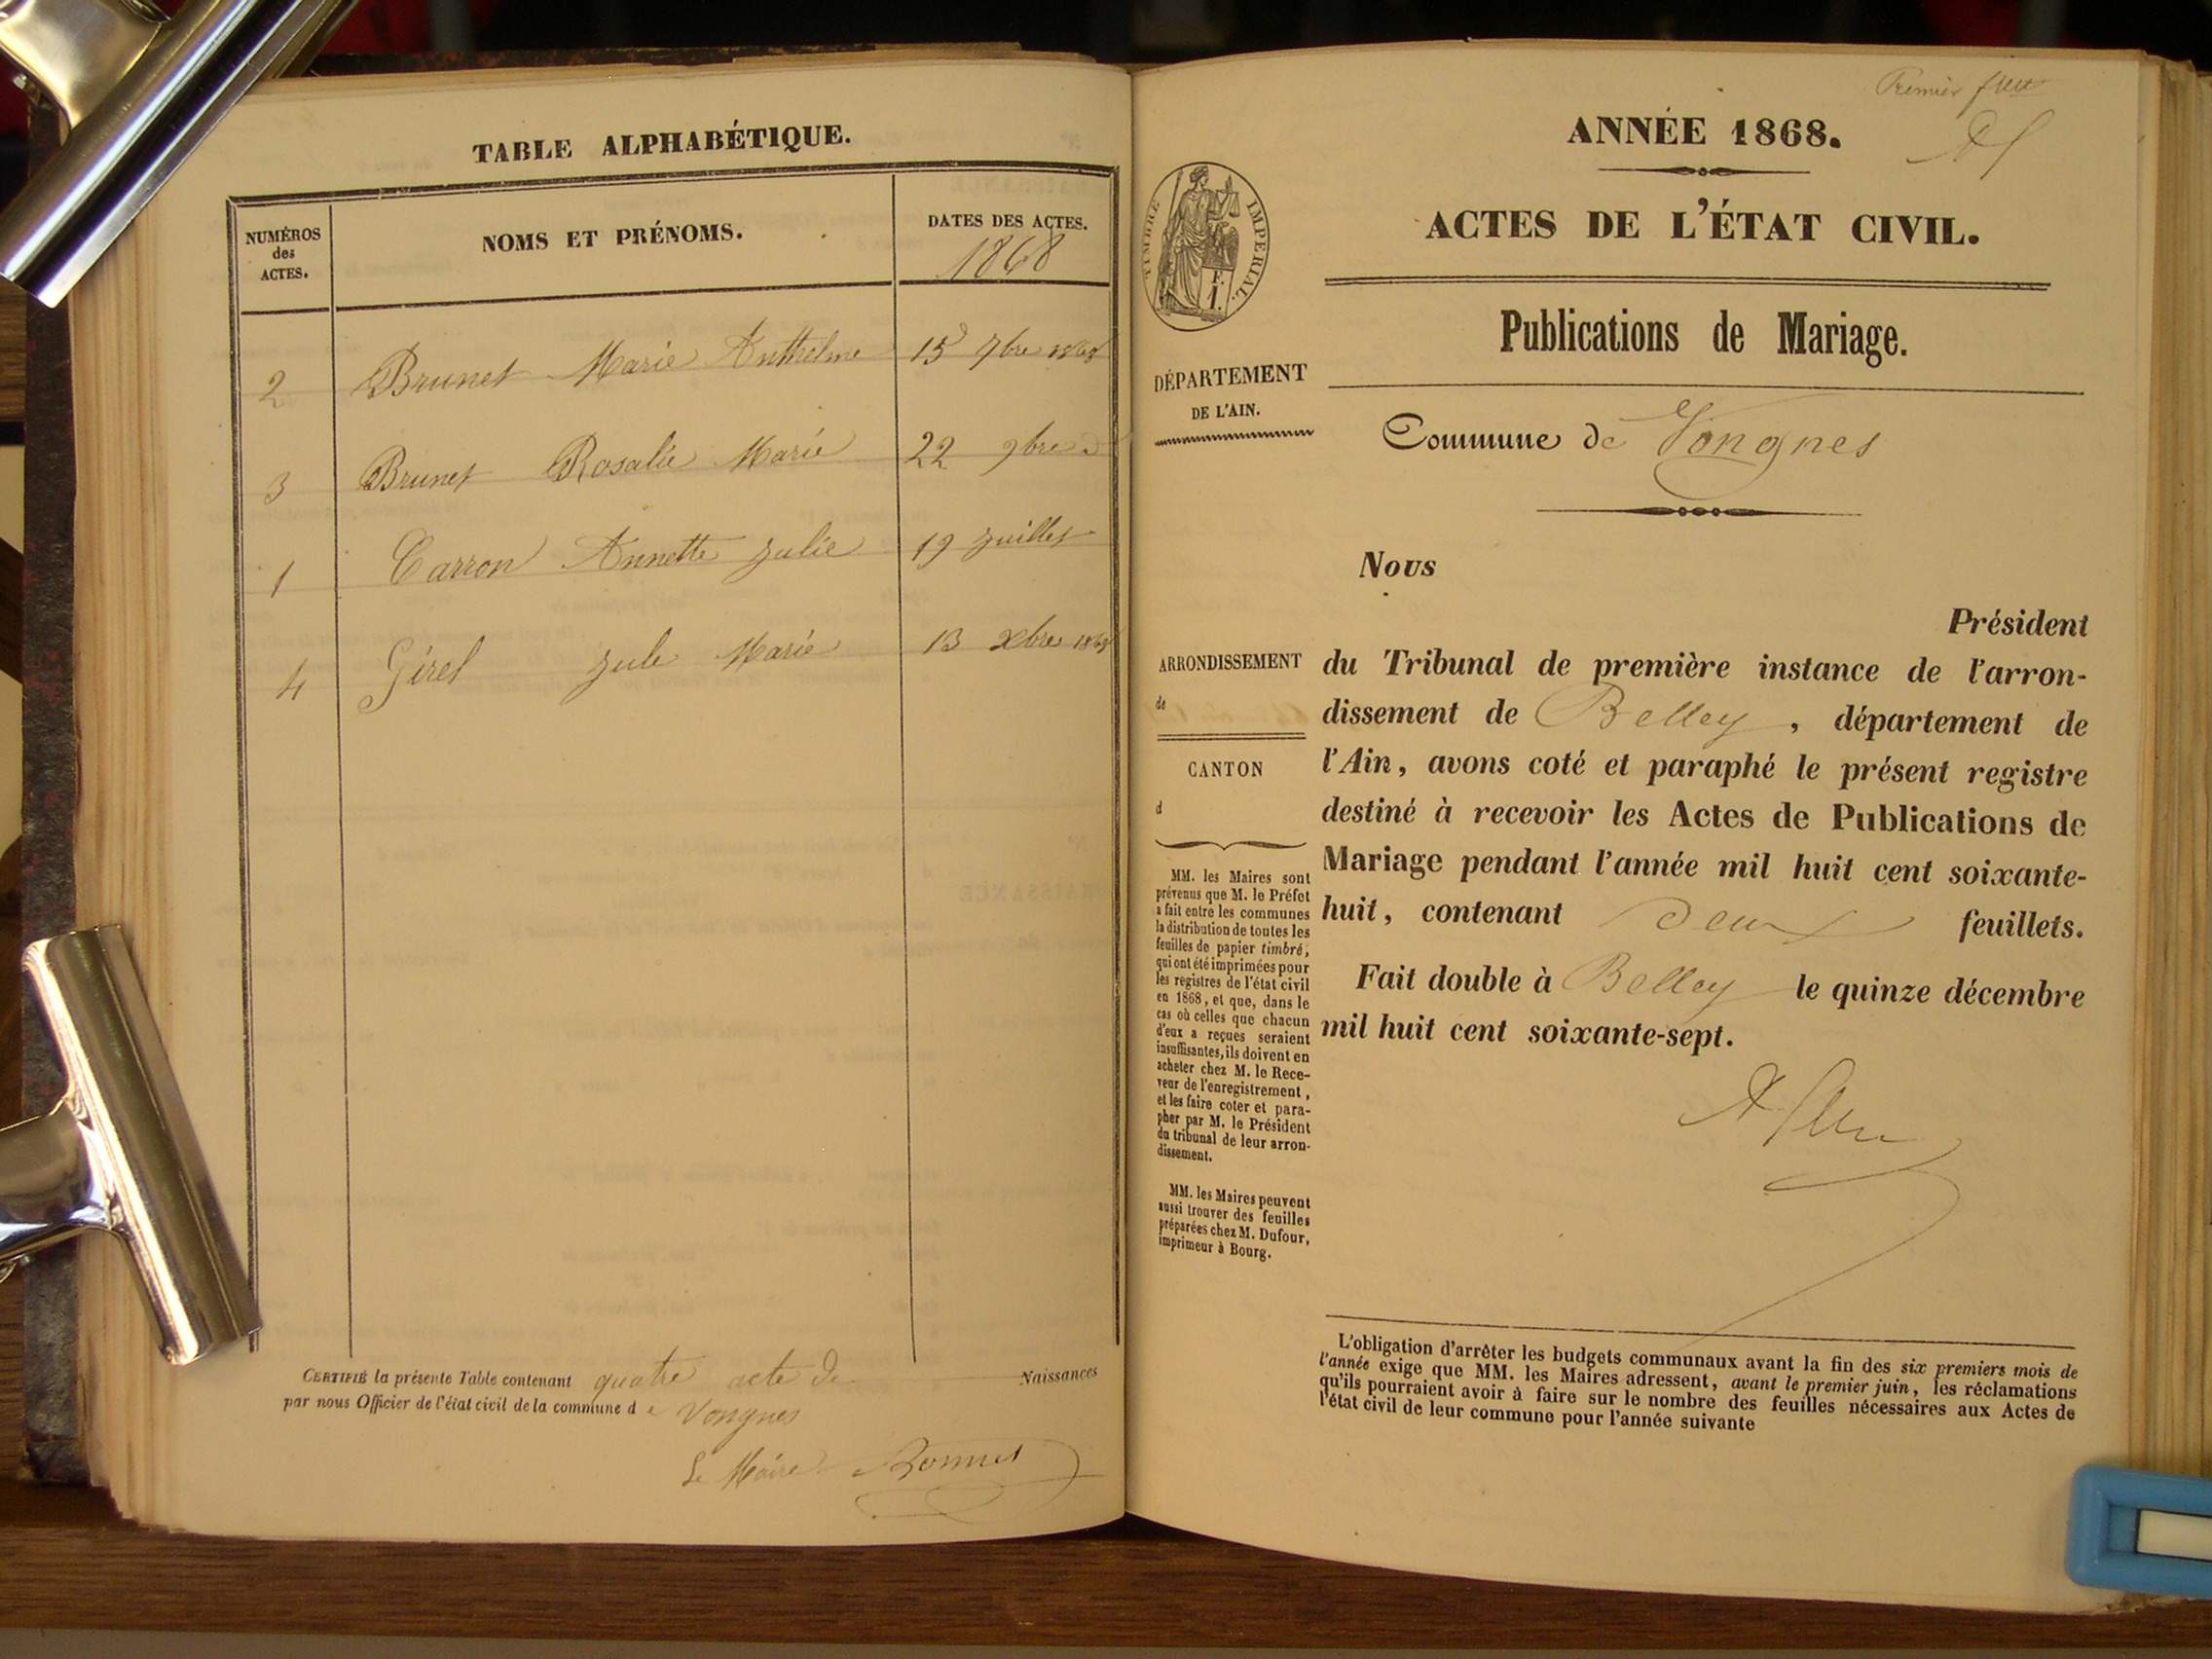 TABLE ALPHABÉTIQUE.
NUMÉROS
des
ACTES.
NOMS ET PRÉNOMS.
DATES DES ACTES.
1868
2 Brunet Marie Anthelme 15 7bre 1868
3 Brunet Rosalie Marie 22 9bre
1 Carron Annette Julie 19 Juillet
4 Girel Jule Marie 13 Xbre 1868
CERTIFIÉ la présente Table contenant quatre acte de Naissances
par nous Officier de l'état civil de la commune de Vongnes
Le Maire Bonnet
Premier
ANNÉE 1868.
ACTES DE L'ÉTAT CIVIL.
TIMBRE IMPÉRIAL.
E.
I.
Publications de Mariage.
DÉPARTEMENT
DE L'AIN.
Commune de Vongnes
Nous
Président
du Tribunal de première instance de l'arron-
dissement de Belley, département de
l'Ain, avons coté et paraphé le présent registre
destiné à recevoir les Actes de Publications de
Mariage pendant l'année mil huit cent soixante-
huit, contenant deux feuillets.
Fait double à Belley le quinze décembre
mil huit cent soixante-sept.
ARRONDISSEMENT
de
CANTON
d
MM. les Maires sont
prévenus que M. le Préfet
a fait entre les communes
la distribution de toutes les
feuilles de papier timbré,
qui ont été imprimées pour
les registres de l'état civil
en 1868, et que, dans le
cas où celles que chacun
d'eux a reçues seraient
insuffisantes, ils doivent en
acheter chez M. le Rece-
veur de l'enregistrement,
et les faire coter et para-
pher par M. le Président
du tribunal de leur arron-
dissement.
MM. les Maires peuvent
aussi trouver des feuilles
préparées chez M. Dufour,
imprimeur à Bourg.
L'obligation d'arrêter les budgets communaux avant la fin des six premiers mois de
l'année exige que MM. les Maires adressent, avant le premier juin, les réclamations
qu'ils pourraient avoir à faire sur le nombre des feuilles nécessaires aux Actes de
l'état civil de leur commune pour l'année suivante